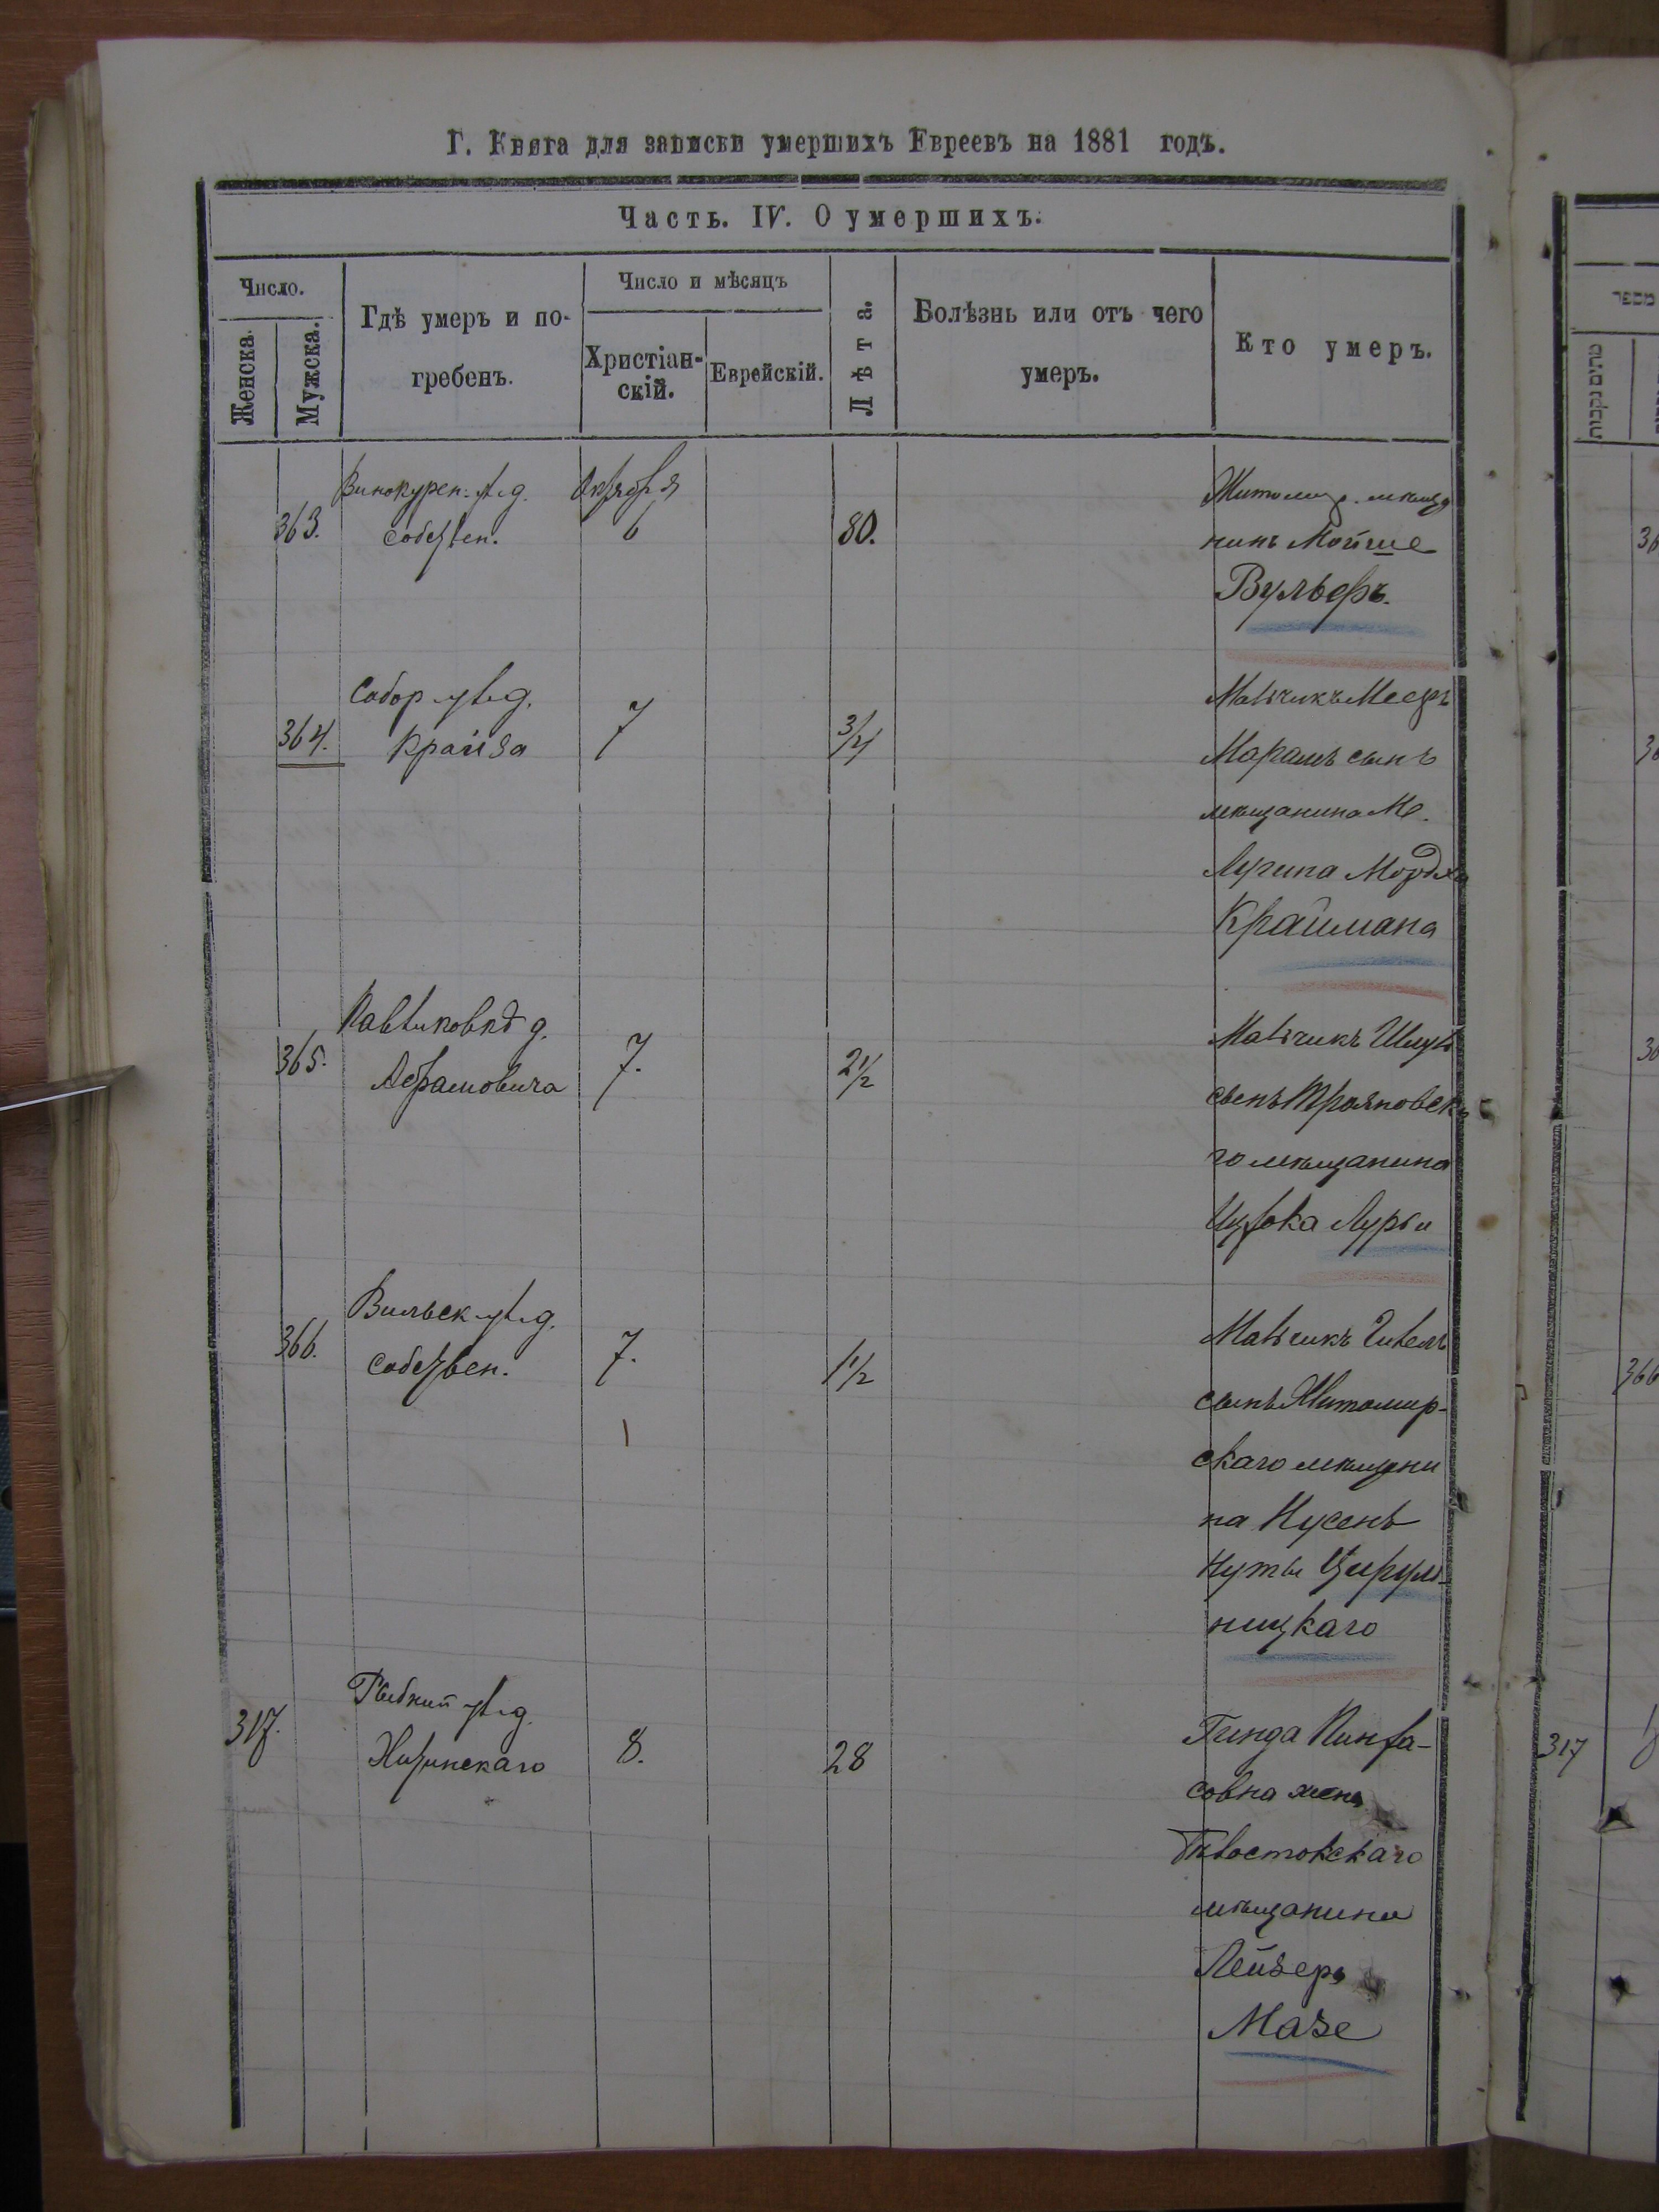 Г. Книга для записки умершихъ Евреевъ на 1881 годъ.
Часть. IV. О умершихъ.
Число.
Женска.
Мужска.
Гдѣ умеръ и по-
гребенъ.
Число и мѣсяцъ
Христіан-
скій.
Еврейскій.
Лѣта.
Болѣзнь или отъ чего
умеръ.
Кто умеръ.
מספר
363.
Винокурен. ул. д.
собствен.
Октября
6
80.
Житомир. мѣща
нинъ Мойше
Вульфъ.
364.
Собор ул. д.
Крайза
7
3/4
Мальчикъ Мееръ
сынъ
мѣщанина М.
Лугина Мордха
Краймана
365.
Павликовкѣ д.
Абрамовича
7.
2 1/2
Мальчикъ Шмуль
сынъ Трояновска
го мѣщанина
Ицхока Лурьи
366.
Вильск ул. д.
собствен.
7.
1 1/2
Мальчикъ
сынъ Житомир-
скаго мѣщани
на Нусенъ
Нуты Цируль-
ницкаго
317.
Рыбний ул. д.
8.
28
Гинда Пинха-
совна жена
Бѣлостокскаго
мѣщанина
Лейзера
Мазе
366
317